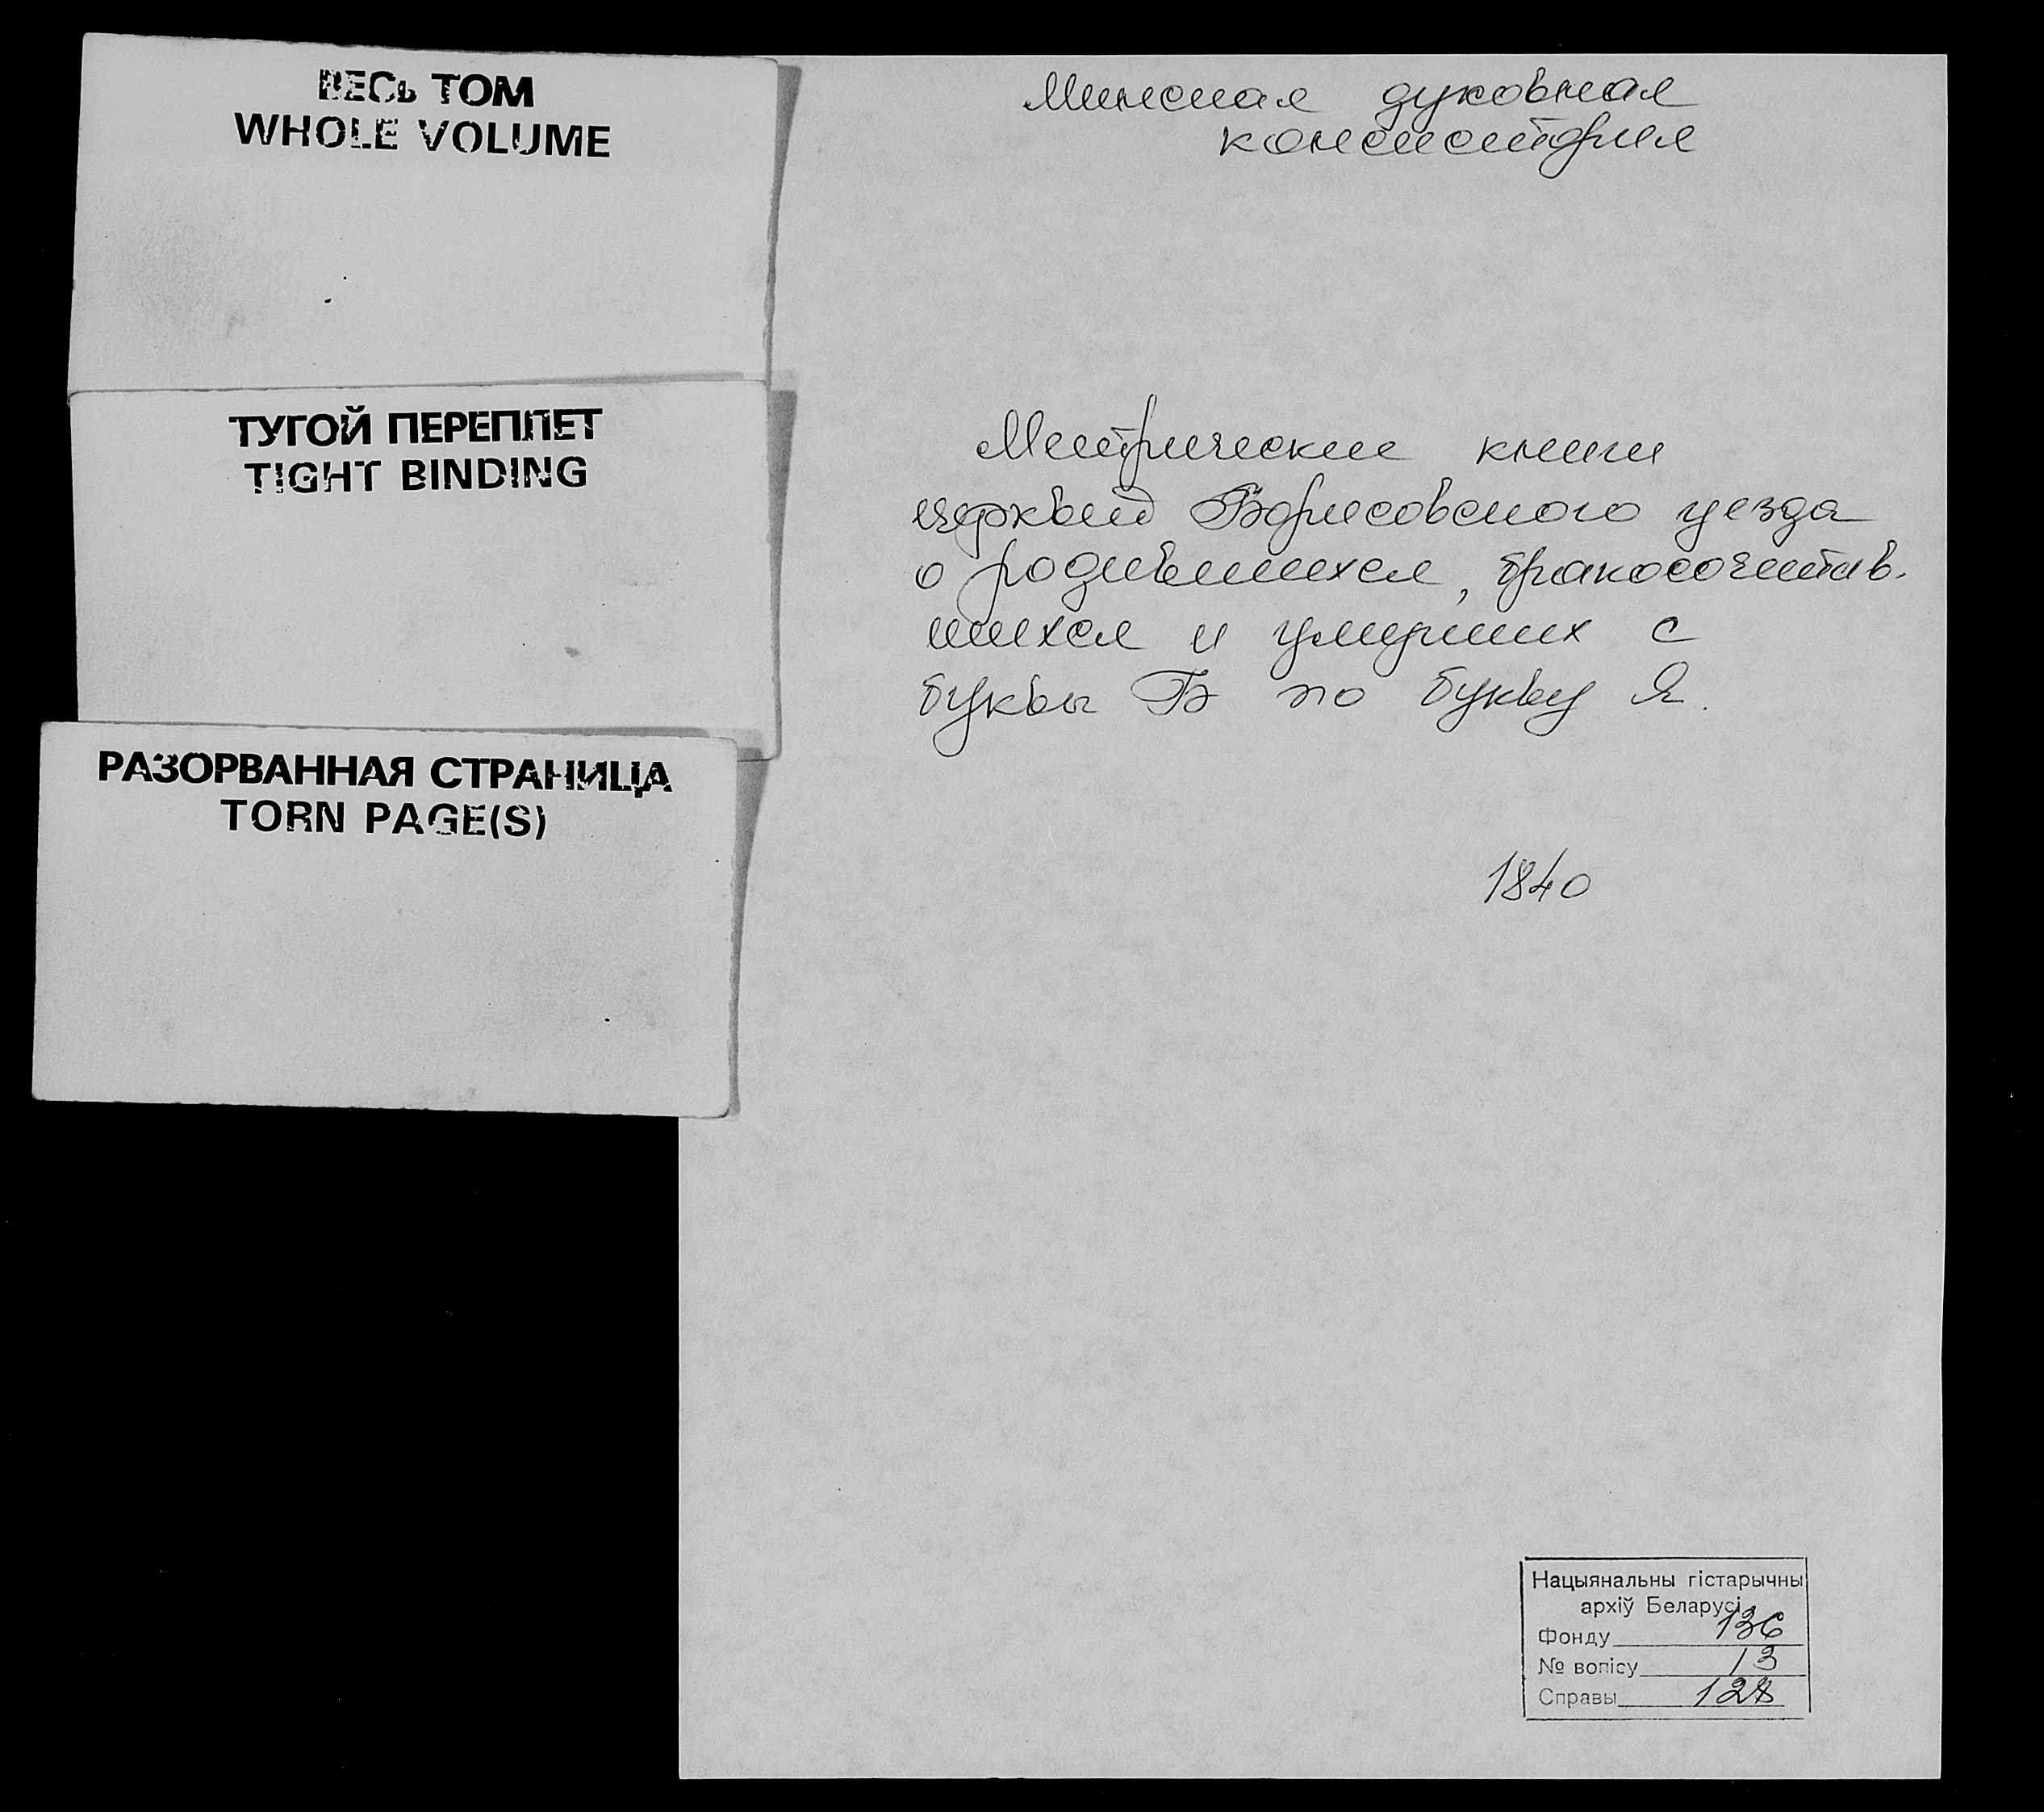 ВЕСЬ ТОМ
WHOLE VOLUME
ТУГОЙ ПЕРЕПЛЕТ
TIGHT BINDING
РАЗОРВАННАЯ СТРАНИЦА
TORN PAGE(S)
Минская духовная
консистория
Метрические книги
церквей Борисовского уезда
о родившихся, бракосочетав-
шихся и умерших с
буквы Б по букву Я.
1840
Нацыянальны гістарычны
архіў Беларусі
Фонду 136
№ вопісу 13
Справы 128